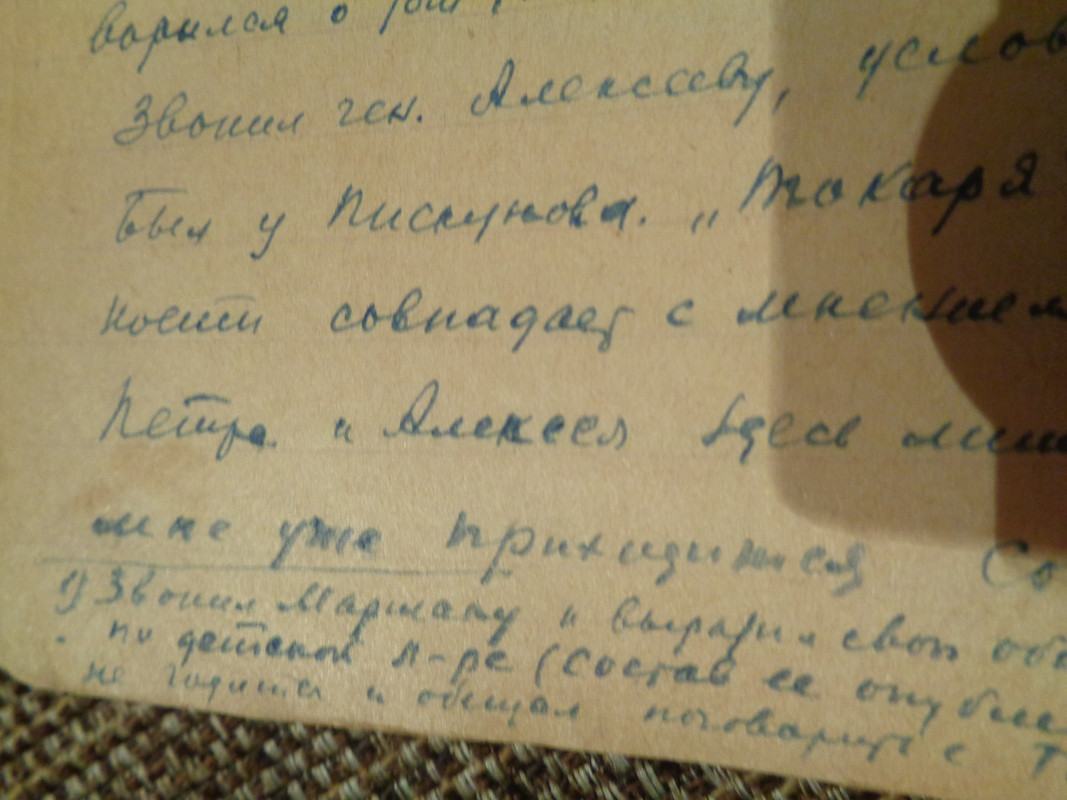 ворился о
Звонил ген. Алексееву, услов
Был у Пискунова. „Токаря
ности совпадает с мнением
Петра и Алексея здесь лиш
мне уже приходится Со
1) Звонил Маршаку и выразил свои
по детской л-ре (состав ее опубли
не годится и обещал поговорить с Т